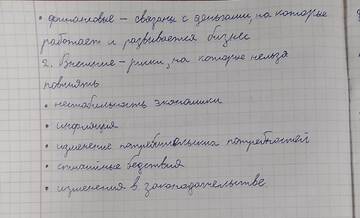 • финансовые – связаны с деньгами, на которые
работает и развивается бизнес
2. Внешние – риски, на которые нельзя
повлиять
• нестабильность экономики
• инфляция
• изменение потребительских потребностей
• стихийные бедствия
• изменения в законодательстве.